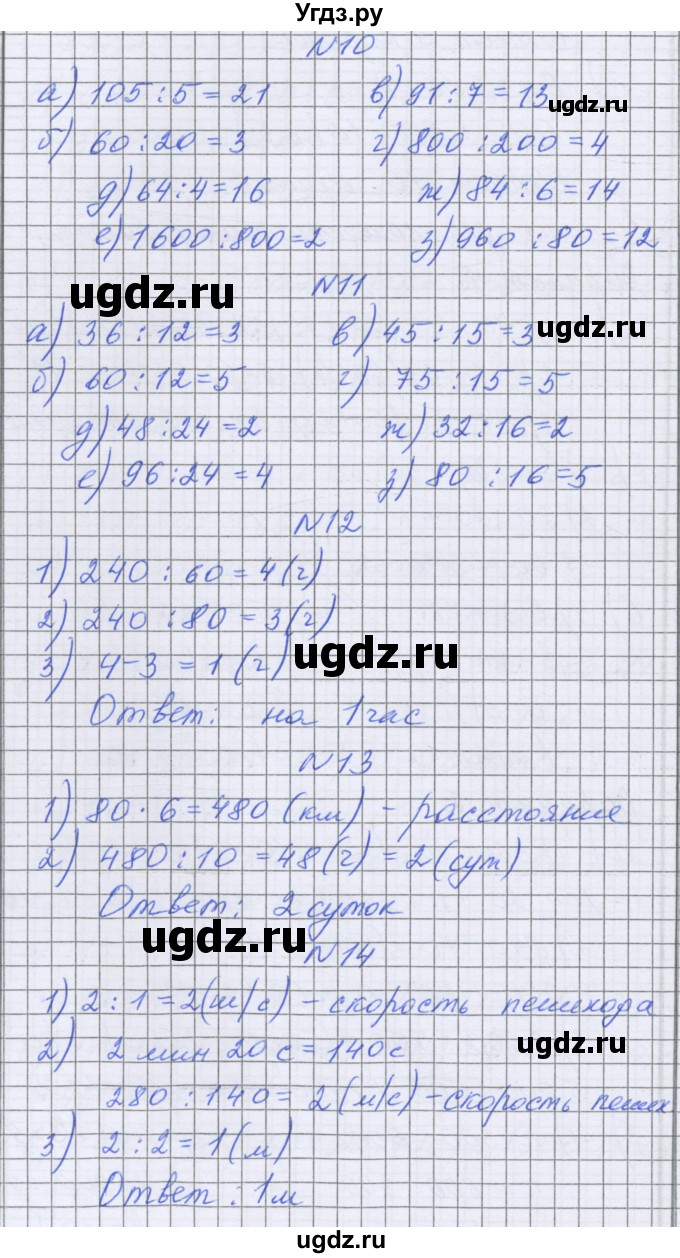 Угдз.ру
N10
а) 105 : 5 = 21 в) 91 : 7 = 13
ugdz.ru
б) 60 : 20 = 3 г) 800 : 200 = 4
д) 64 : 4 = 16 ж) 84 : 6 = 14
е) 1600 : 800 = 2 з) 960 : 80 = 12
ugdz.ru N11
а) 36 : 12 = 3 в) 45 : 15 = 3 ugdz.ru
б) 60 : 12 = 5 г) 75 : 15 = 5
д) 48 : 24 = 2 ж) 32 : 16 = 2
е) 96 : 24 = 4 з) 80 : 16 = 5
N12
1) 240 : 60 = 4 (г)
2) 240 : 80 = 3 (г)
3) 4 - 3 = 1 (г) ugdz.ru
Ответ: на 1 час
N13
1) 80 · 6 = 480 (км) - расстояние
2) 480 : 10 = 48 (г) = 2 (сут)
Ответ: 2 суток
ugdz.ru N14
1) 2 : 1 = 2 (м/с) - скорость пешехода
2) 2 мин 20 с = 140 с ugdz.ru
280 : 140 = 2 (м/с) - скорость пешех
3) 2 : 2 = 1 (м)
Ответ: 1 м
ugdz.ru